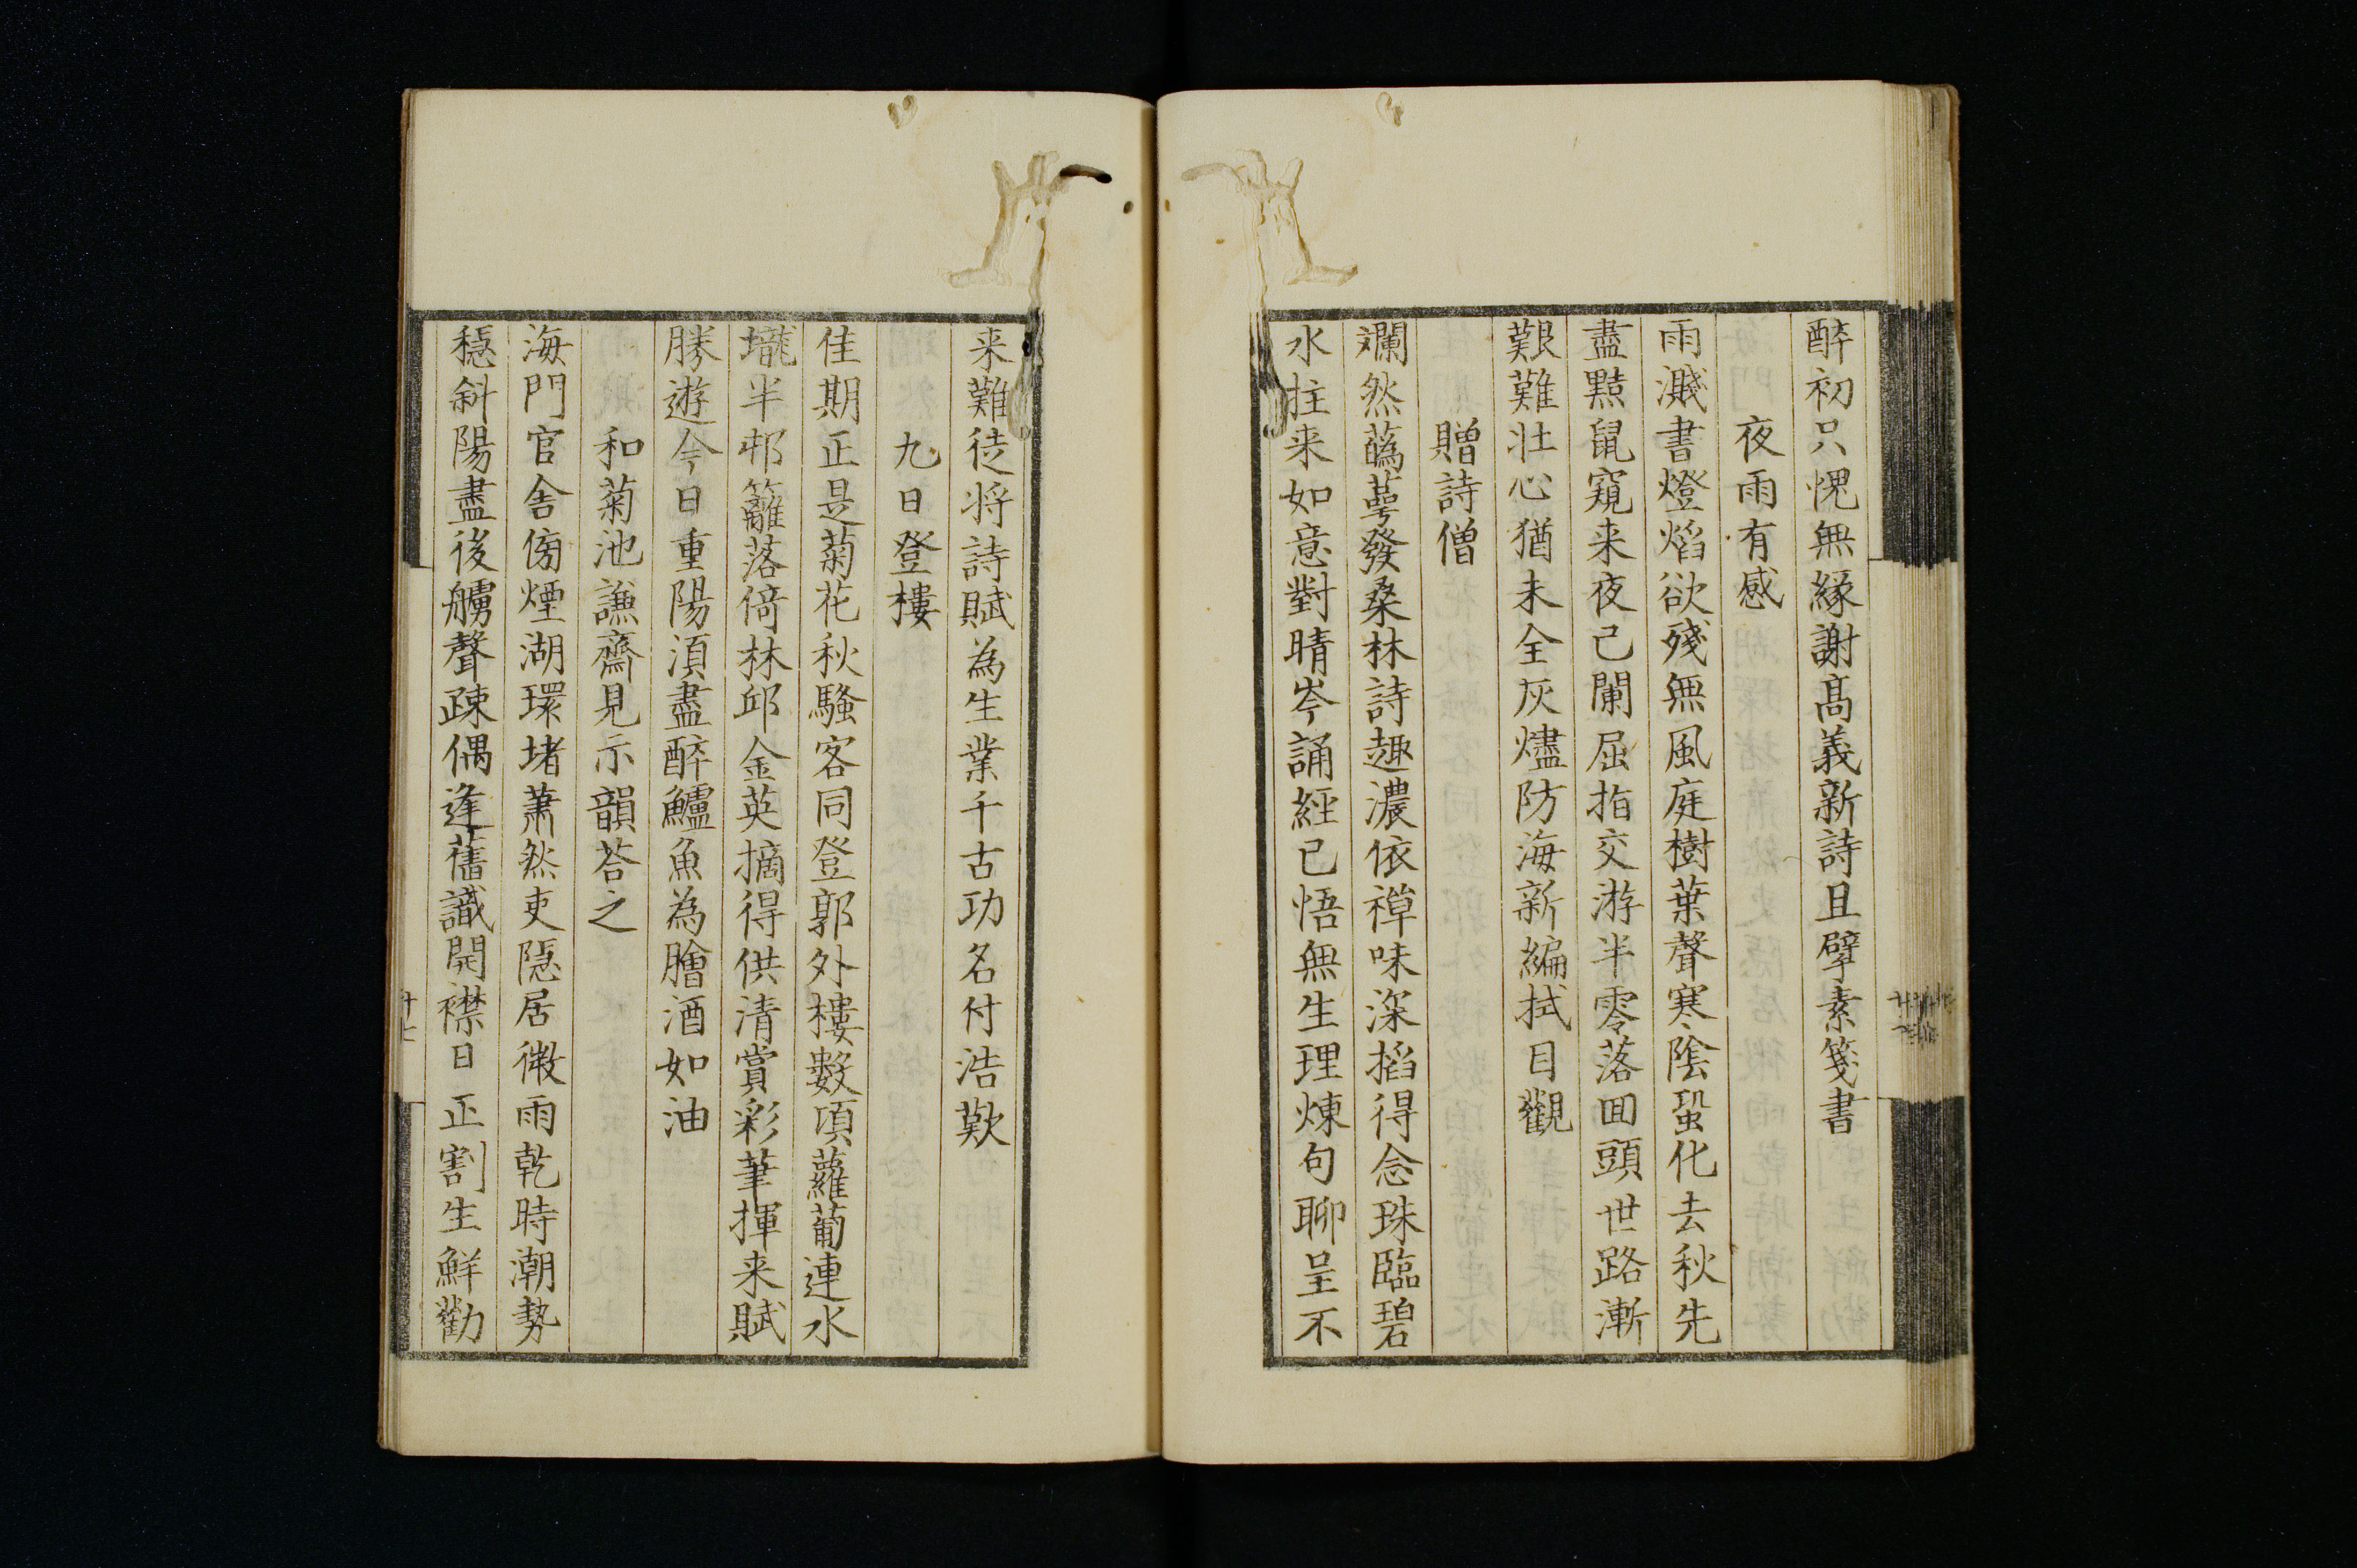 醉初只愧無緣謝髙義新詩且擘素箋書
夜雨有感
雨濺書燈焰欲殘無風庭樹葉聲寒陰蛩化去秋先
盡黠鼠窺来夜已闌屈指交游半零落囬頭世路漸
艱難壮心猶未全灰燼防海新編拭目觀
贈詩僧
斕然蘤萼發桑林詩趣濃依禪味深搯得念珠臨碧
水拄来如意對晴岑誦経已悟無生理煉句聊呈不
来難徒将詩賦為生業千古功名付浩歎
九日登樓
佳期正是菊花秋騷客同登郭外樓數頃蘿蔔連水
壠半邨籬落倚林邱金英摘得供清賞彩筆揮来賦
勝遊今日重陽湏盡醉鱸魚為膾酒如油
和菊池謙齋見示韻荅之
海門官舎傍煙湖環堵蕭然吏隠居微雨乾時潮勢
穏斜陽盡後艣聲疎偶逢舊識開襟日正割生鮮勸
十七